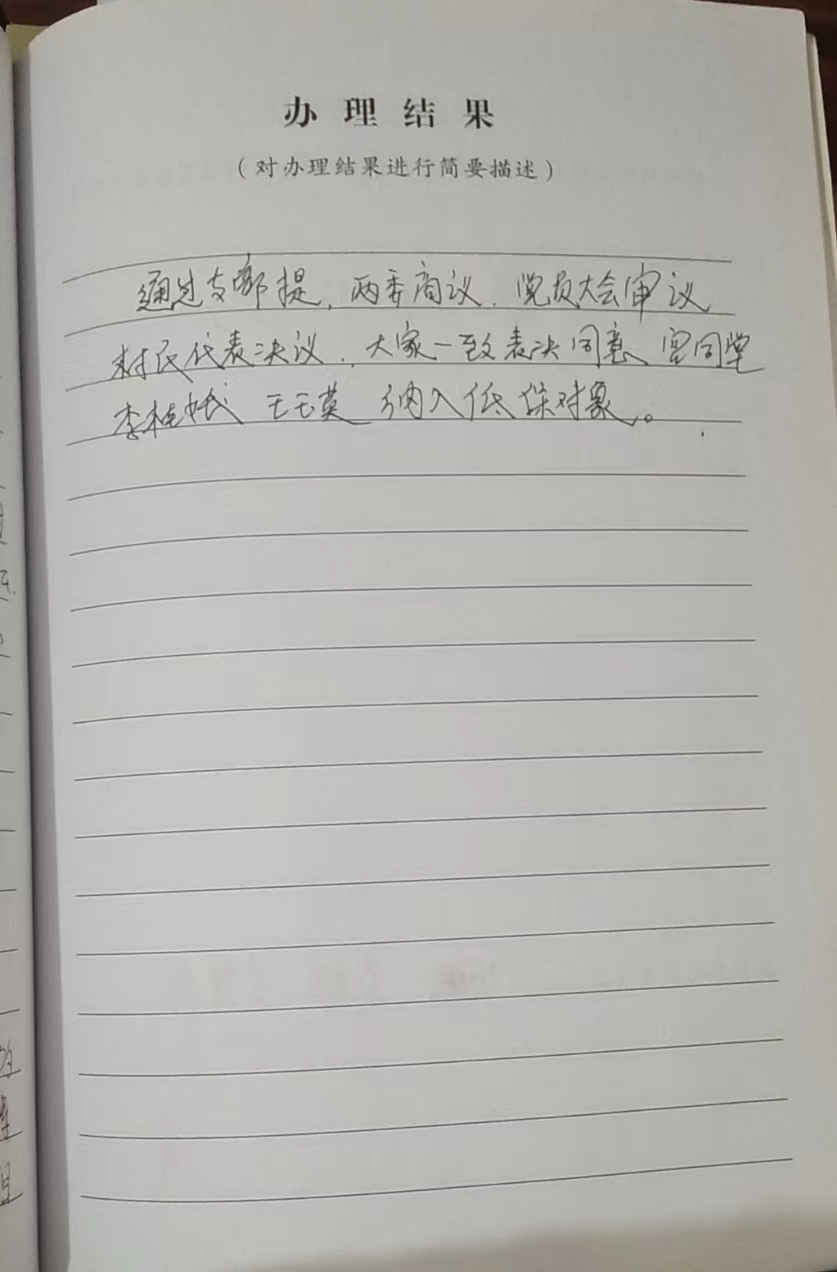 办理结果
（对办理结果进行简要描述）
通过支部提，两委商议，党员大会审议
村民代表决议，大家一致表决同意 宫同堂
李桂娥 王玉英 纳入低保对象。